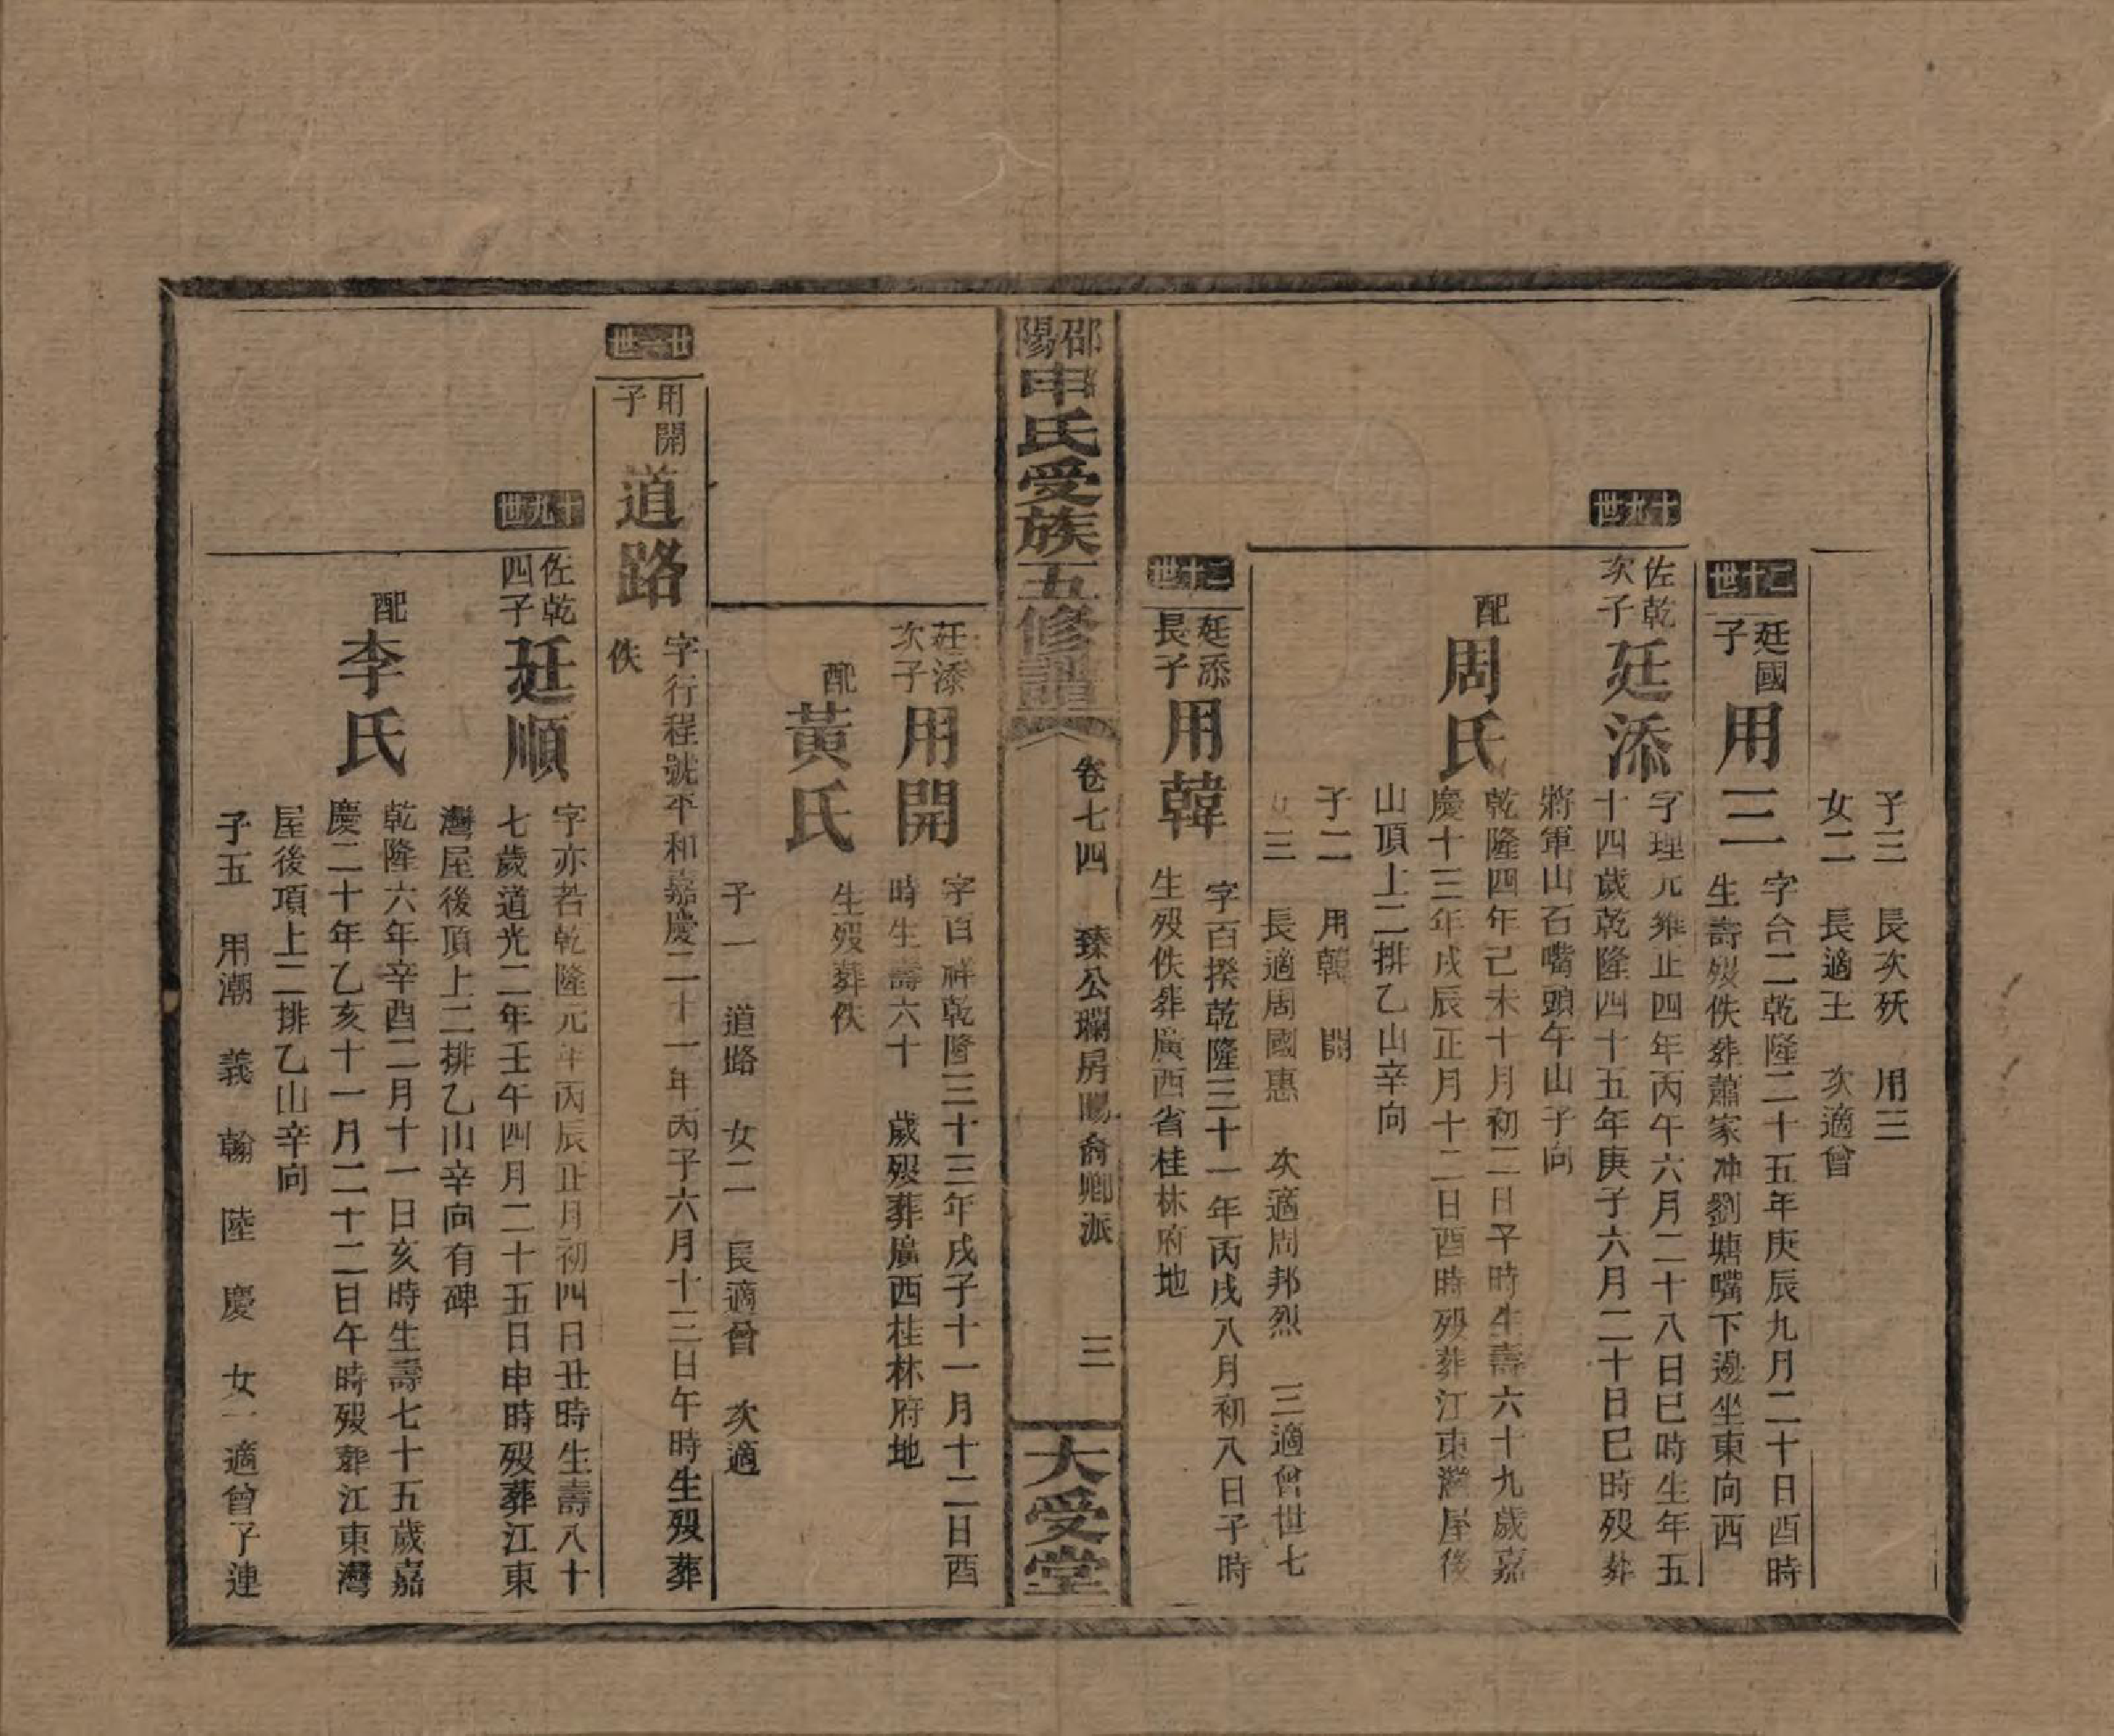 子三 長次殀 用三
女二 長適王 次適曾
二十世
廷國子
用三
字台二乾隆二十五年庚辰九月二十日酉時
生壽歿佚葬蕭家冲劉塘嘴下邊坐東向西
十九世
佐乾次子
廷添
字理元雍正四年丙午六月二十八日巳時生年五
十四歲乾隆四十五年庚子六月二十日巳時歿葬
將軍山石嘴頭午山子向
配
周氏
乾隆四年己未十月初二日子時生壽六十九歲嘉
慶十三年戊辰正月十二日酉時歿葬江東灣屋後
山頂上二排乙山辛向
子二 用韓 開
女三 長適周國惠 次適周邦烈 三適曾世七
二十世
廷添長子
用韓
字百揆乾隆三十一年丙戌八月初八日子時
生歿佚葬廣西省桂林府地
邵陽申氏受族五修譜
卷七四 臻公瓓房暘裔卿派 三
大受堂
廷添次子
用開
字百祥乾隆三十三年戊子十一月十二日酉
時生壽六十 歲歿葬廣西桂林府地
配
黃氏
生歿葬佚
子一 道路 女二 長適曾 次適
廿一世
用開子
道路
字行程號平和嘉慶二十一年丙子六月十三日午時生歿葬
佚
十九世
佐乾四子
廷順
字亦若乾隆元年丙辰正月初四日丑時生壽八十
七歲道光二年壬午四月二十五日申時歿葬江東
灣屋後頂上二排乙山辛向有碑
配
李氏
乾隆六年辛酉二月十一日亥時生壽七十五歲嘉
慶二十年乙亥十一月二十二日午時歿葬江東灣
屋後頂上二排乙山辛向
子五 用潮 義 翰 陸 慶 女一適曾子連